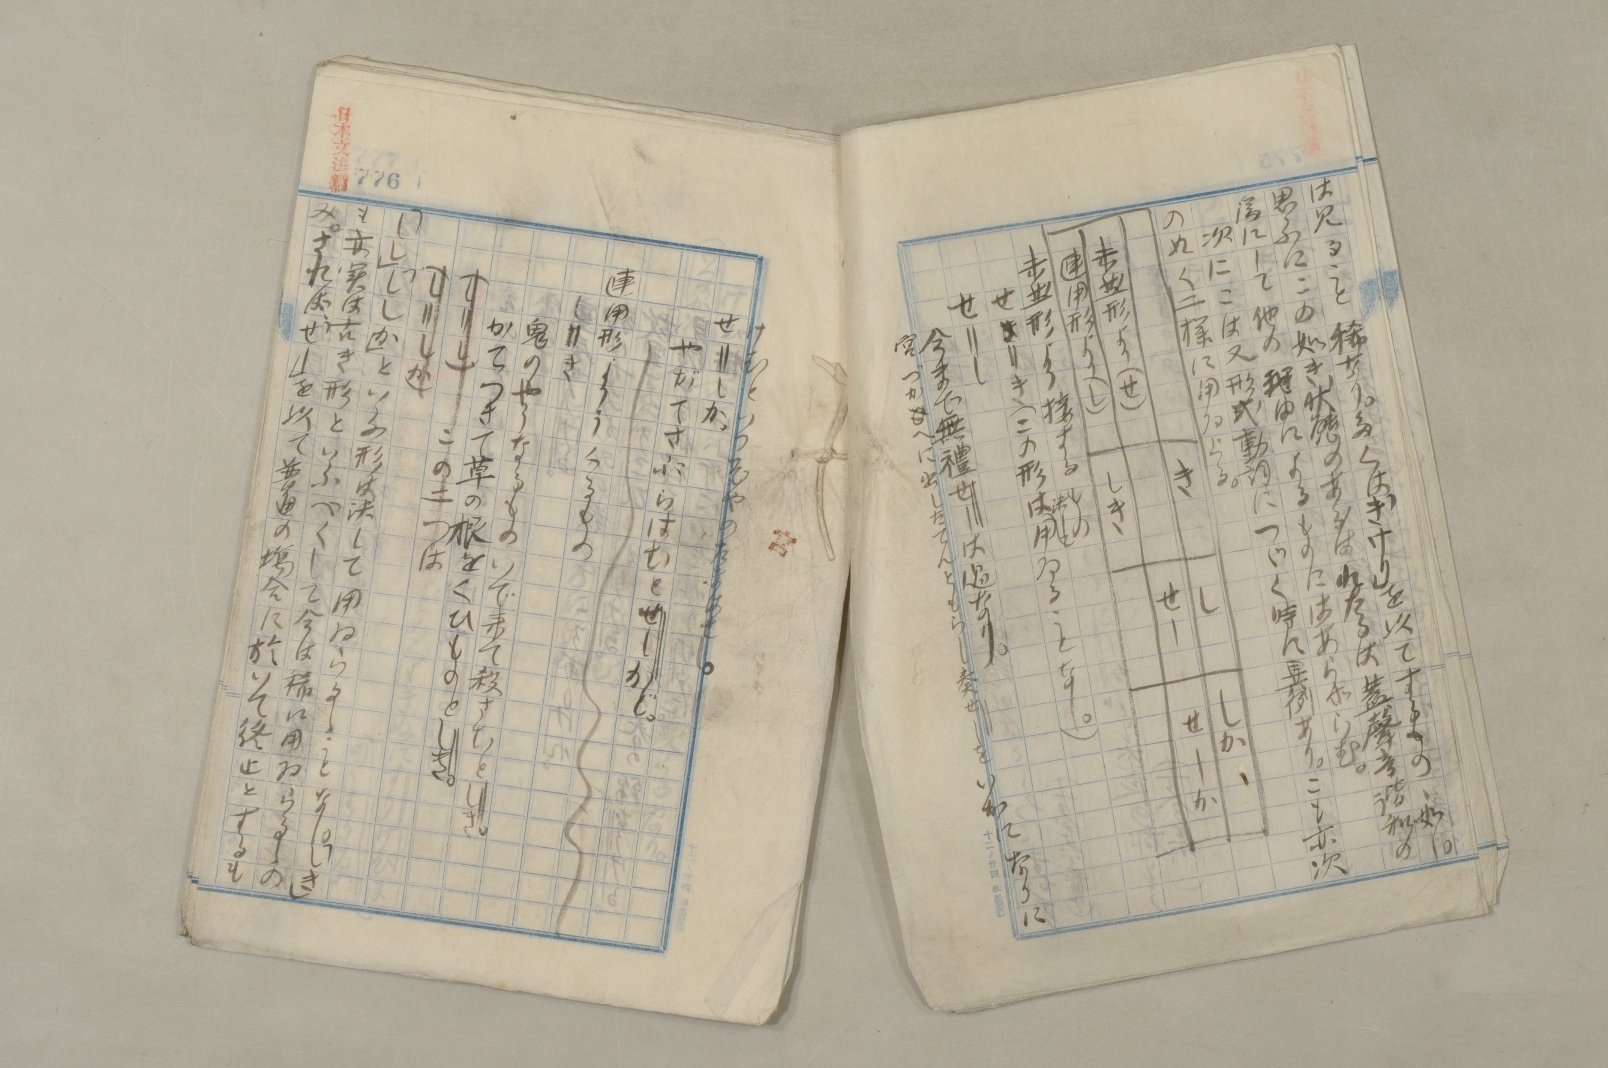 は見ること稀なり。多くは「き」「けり」を以てするもの、如し。
思ふにこの如き状態のあらはれたるは蓋聲音諧和の
為にして他の理由によるものにはあらざらむ。
次にこは又形式動詞につゞく時に異例あり。こも亦次
のぬく二様に用ゐらる。
き
し
しか
未然形より(せ)
せ―し
せ―しか
連用形より(し)
しき
未然形より接する
せ―き(この形は用ゐることなし。)
せ―し
今まで無禮せ―しは過なり。
宮づかへに出したてんともらし奏せ―しをいかになりに
せ―しか
やがてさぶらはむとせ―しかど。
連用形より くるもの
し―き
鬼のやうなるものいで来て殺さむとし―き。
かてつきて草の根をくひものとし―き。
し―し
し―しか
この二つは
「ししし」「ししか」といふ形は決して用ゐらるることなし。「しき」
も亦実は古き形といふべくして今は稀に用ゐらるるの
み。されば「せし」を以て普通の場合に於いて終止とするも
日本文法
776